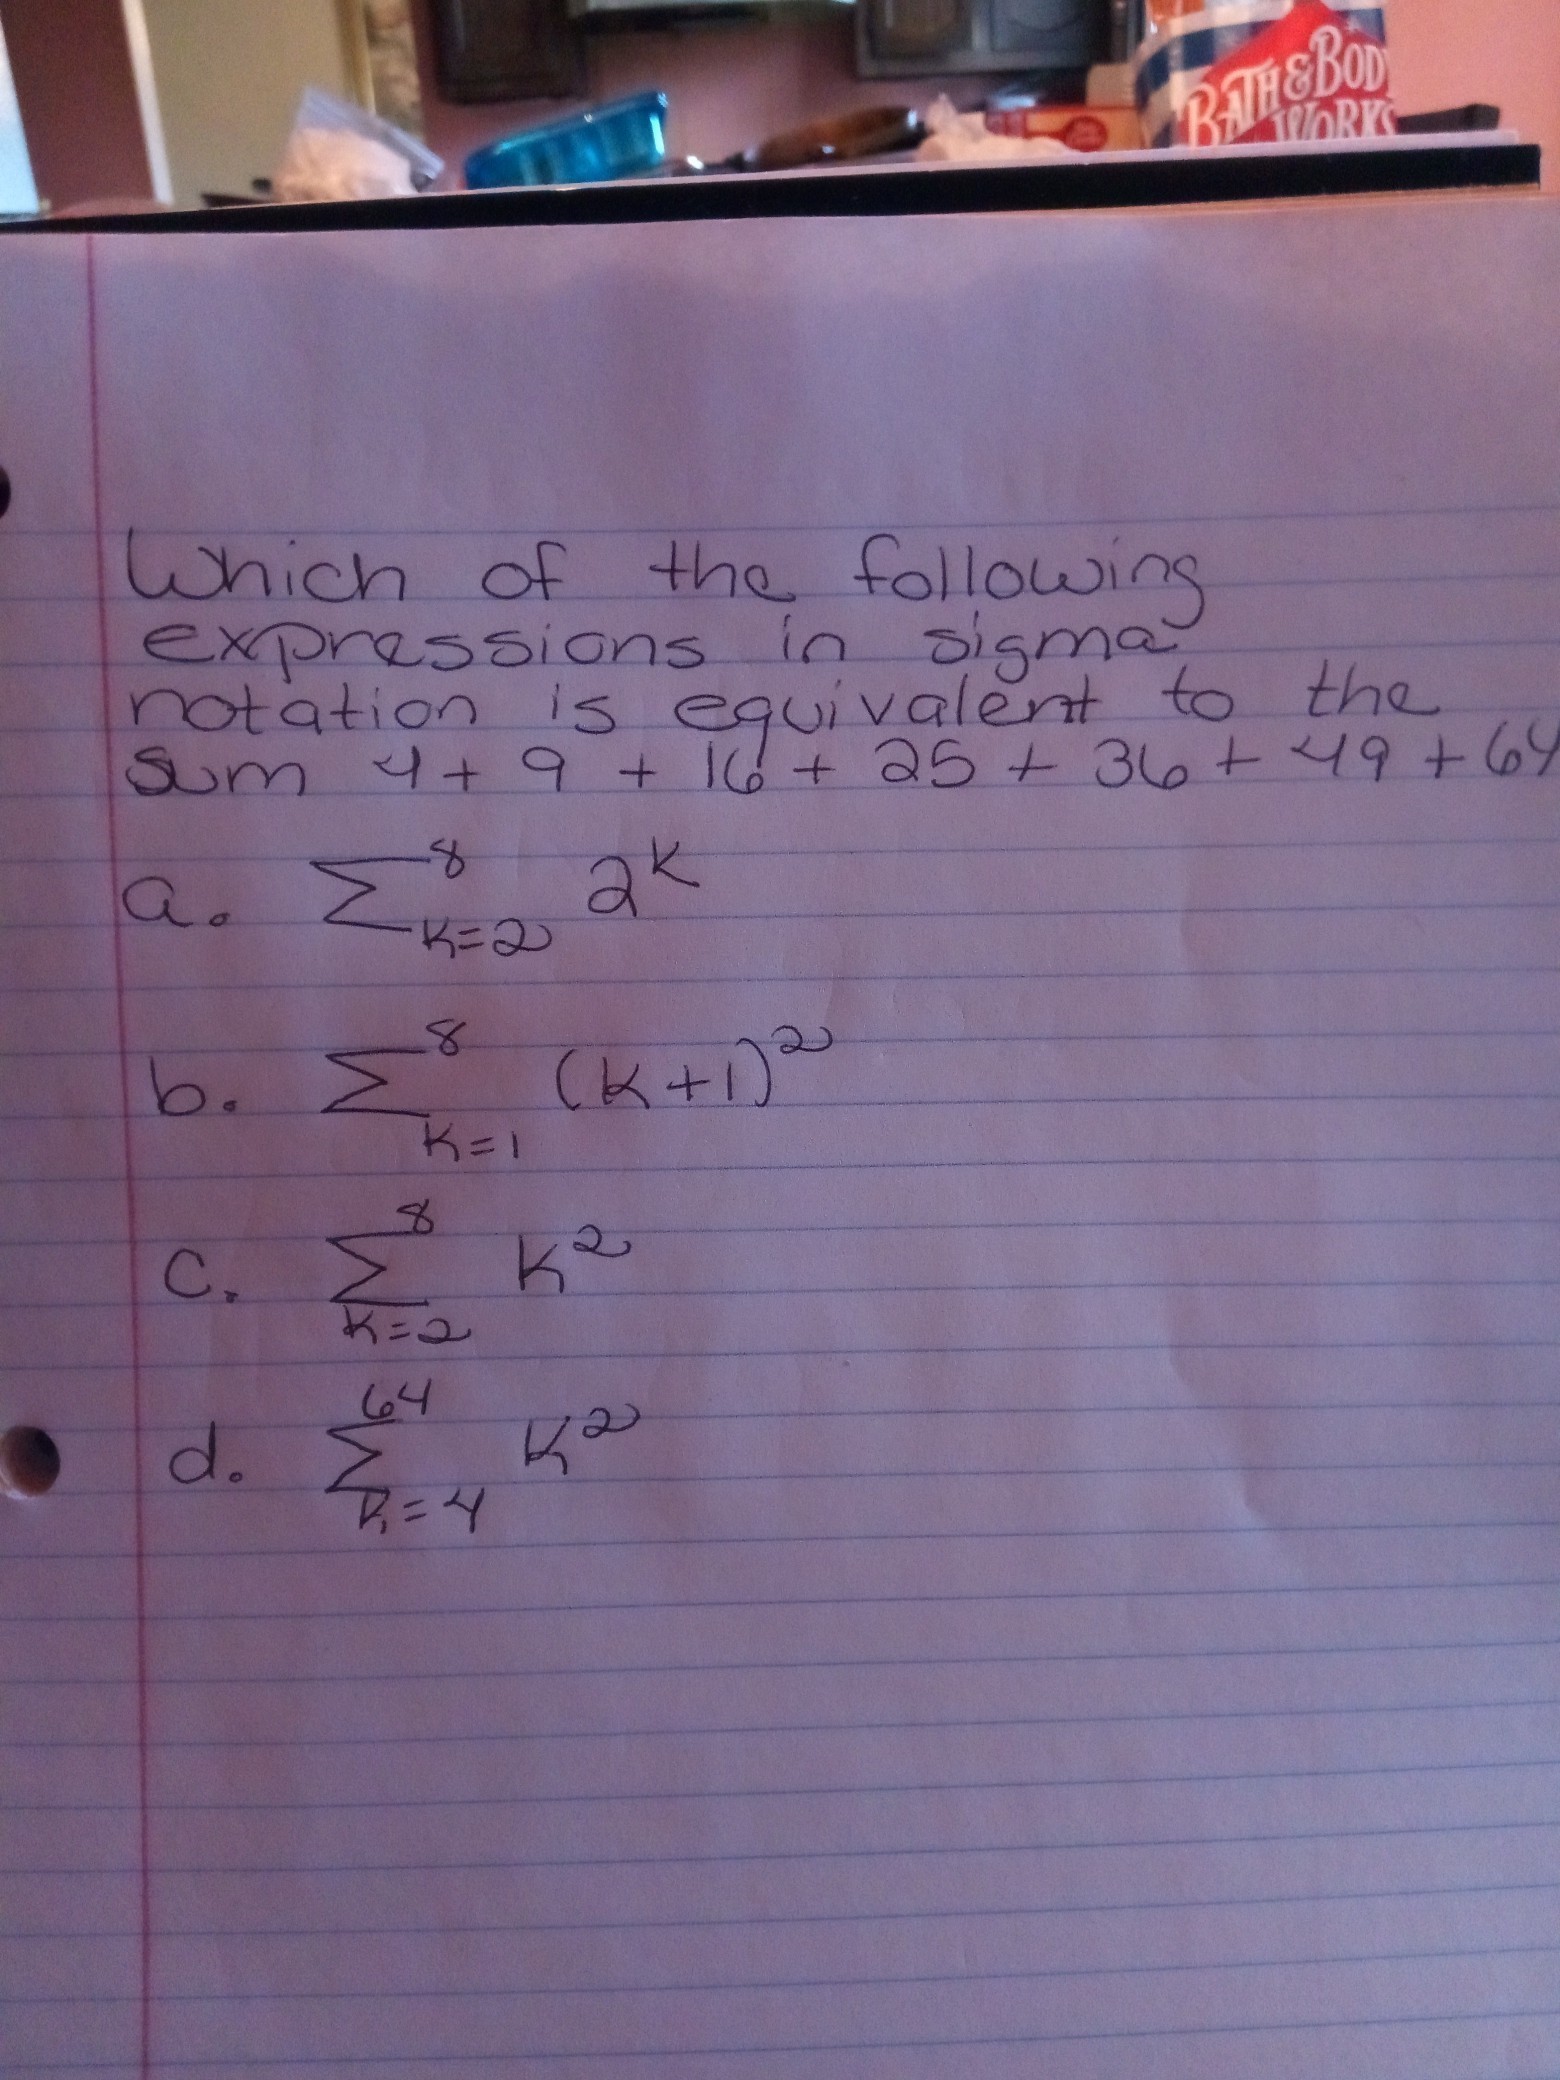 BATH & BODY
WORKS
Which of the following
expressions in sigma
notation is equivalent to the
sum 4 + 9 + 16 + 25 + 36 + 49 + 64
a. ∑⁸ₖ₌₂ 2ᵏ
b. ∑⁸ₖ₌₁ (k+1)²
c. ∑⁸ₖ₌₂ k²
d. ∑⁶⁴ₖ₌₄ k²